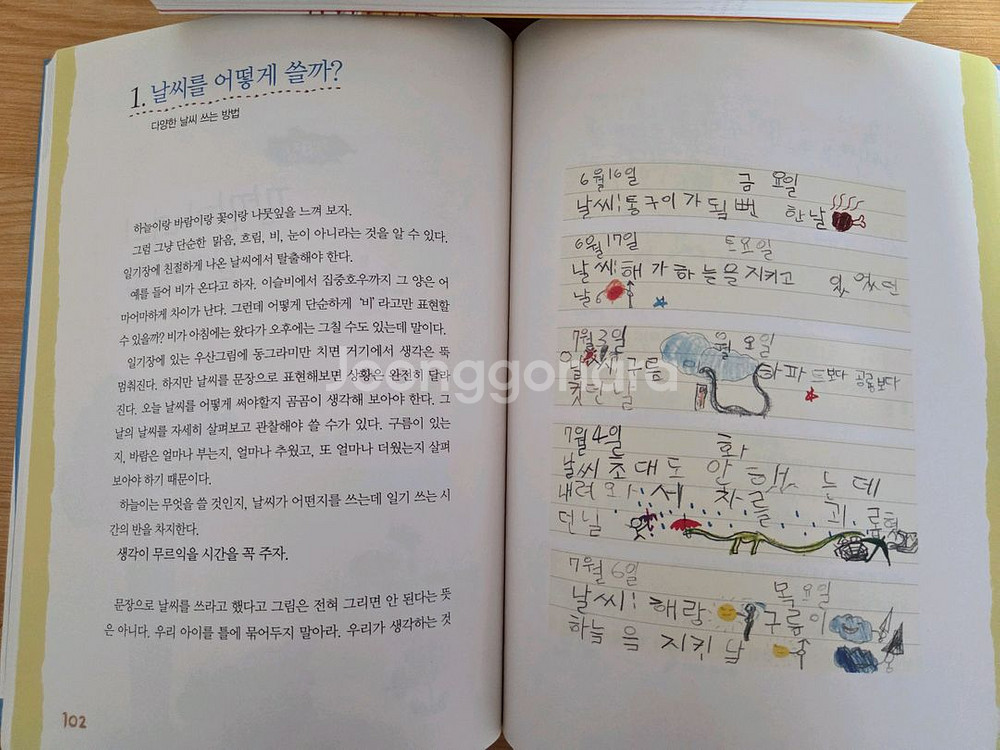 1. 날씨를 어떻게 쓸까?
다양한 날씨 쓰는 방법
하늘이랑 바람이랑 꽃이랑 나뭇잎을 느껴 보자.
그럼 그냥 단순한 맑음, 흐림, 비, 눈이 아니라는 것을 알 수 있다.
일기장에 친절하게 나온 날씨에서 탈출해야 한다.
예를 들어 비가 온다고 하자. 이슬비에서 집중호우까지 그 양은 어
마어마하게 차이가 난다. 그런데 어떻게 단순하게 '비'라고만 표현할
수 있을까? 비가 아침에는 왔다가 오후에는 그칠 수도 있는데 말이다.
일기장에 있는 우산그림에 동그라미만 치면 거기에서 생각은 뚝
멈춰진다. 하지만 날씨를 문장으로 표현해보면 상황은 완전히 달라
진다. 오늘 날씨를 어떻게 써야할지 곰곰이 생각해 보아야 한다. 그
날의 날씨를 자세히 살펴보고 관찰해야 쓸 수가 있다. 구름이 있는
지, 바람은 얼마나 부는지, 얼마나 추웠고, 또 얼마나 더웠는지 살펴
보아야 하기 때문이다.
하늘이는 무엇을 쓸 것인지, 날씨가 어떤지를 쓰는데 일기 쓰는 시
간의 반을 차지한다.
생각이 무르익을 시간을 꼭 주자.
문장으로 날씨를 쓰라고 했다고 그림은 전혀 그리면 안 된다는 뜻
은 아니다. 우리 아이를 틀에 묶어두지 말아라. 우리가 생각하는 것
102
6월16일 금 요일
날씨:통구이가 될뻔 한날
6월 17일 토요일
날씨:해가하늘을지키고 있었던
날
7월3일 월 요일
구름 아파트보다 공룡보다
컷던날
7월 4일 화
날씨 초대도 안 했는데
내려와서 차를 괴롭혔
던날
7월 6일 목요일
날씨: 해랑 구름이
하늘을 지키날
Joonggonara